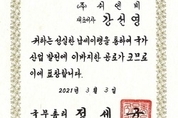 (주) 서연비
대표이사 강신영
귀하는 성실한 납세이행을 통하여 국가
산업 발전에 이바지한 공로가 크므로
이에 표창합니다.
2021년 3월 3일
국무총리 정세균